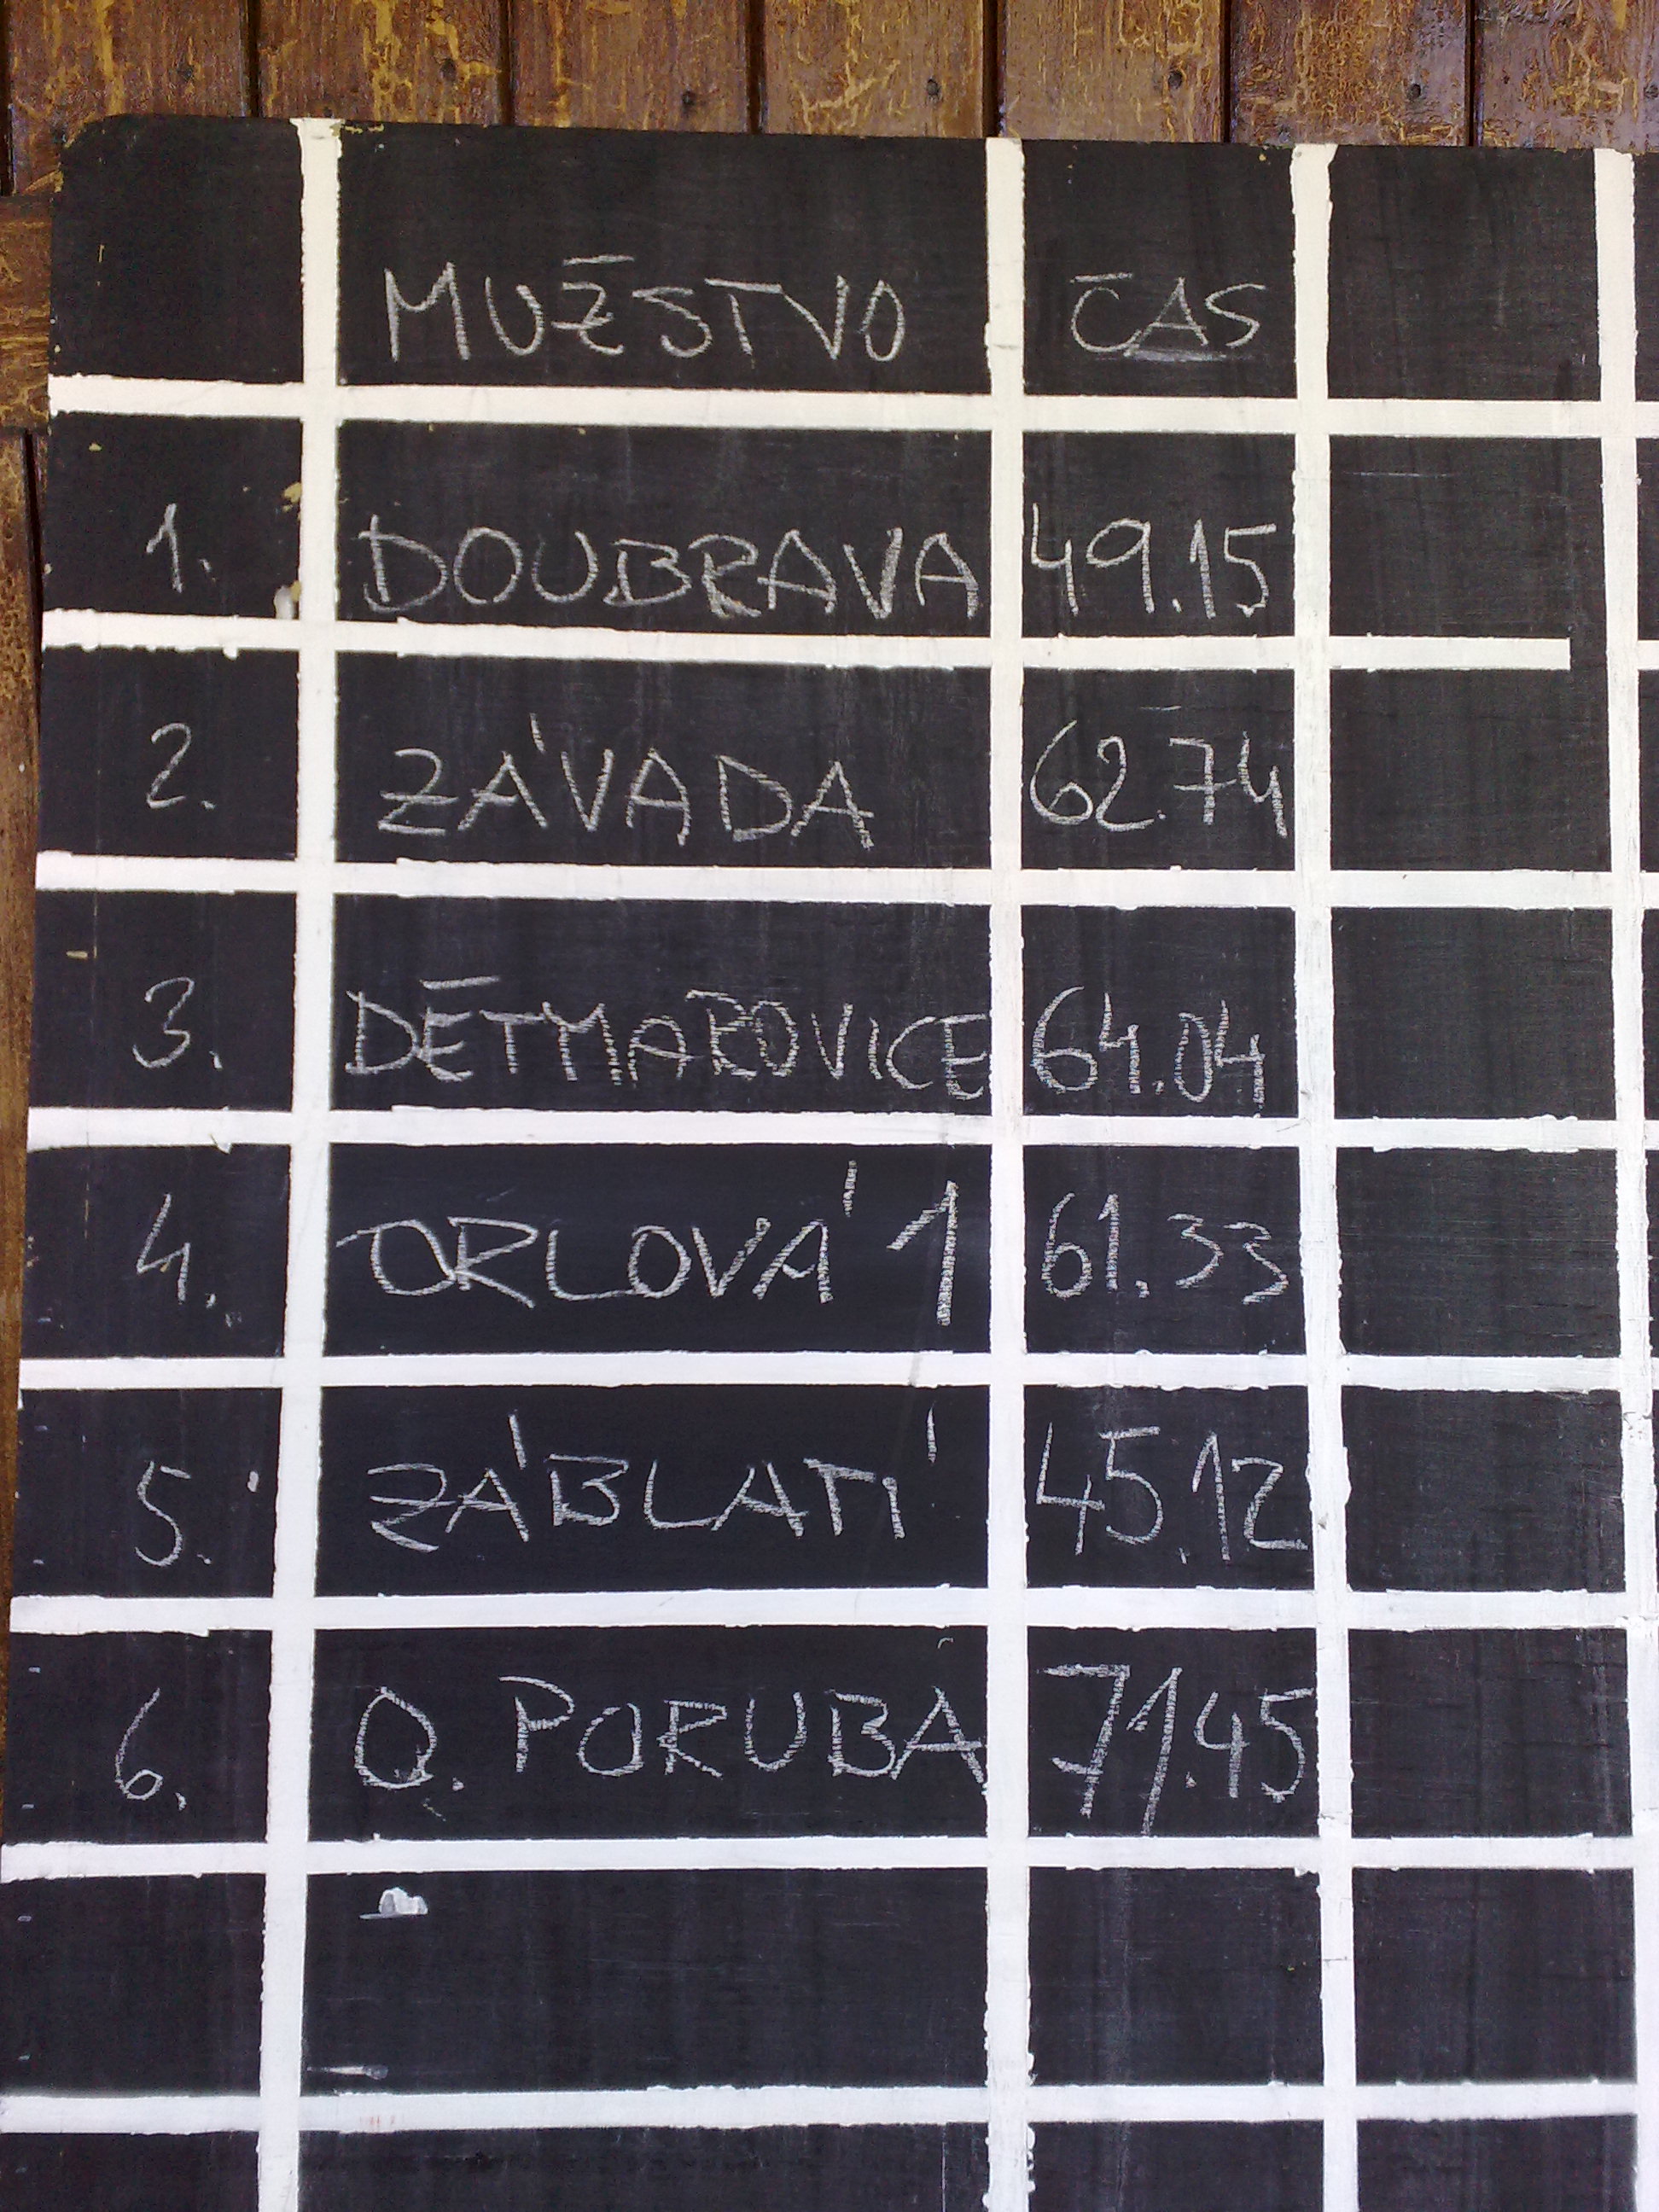 MUŽSTVO ČAS
1. DOUBRAVA 49.15
2. ZÁVADA 62.74
3. DĚTMAROVICE 64.04
4. ORLOVÁ 1 61.33
5. ZÁBLATÍ 45.12
6. O. PORUBA 71.45